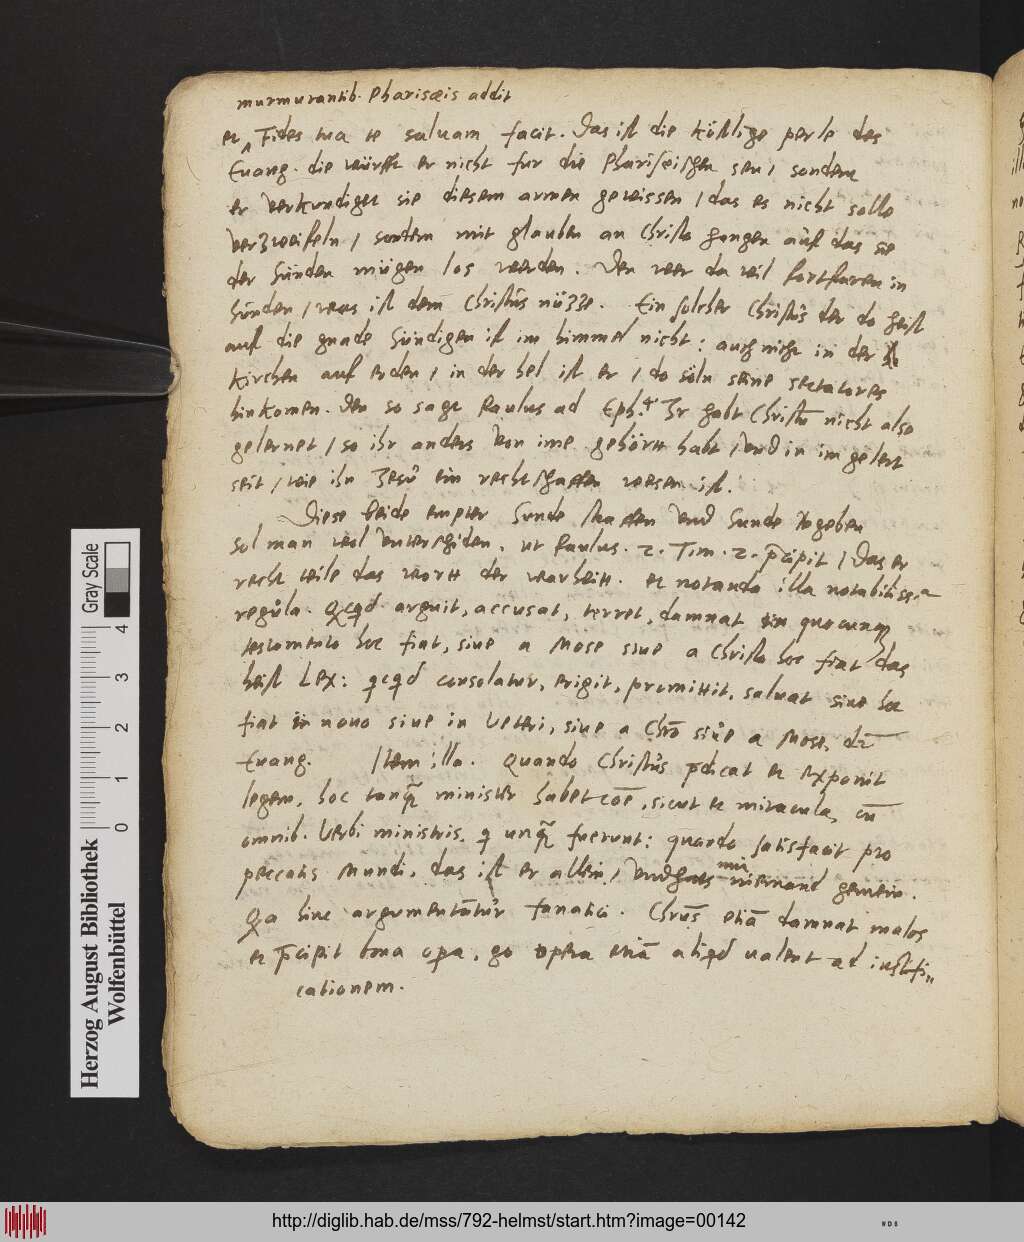 murmurantib. Pharisæis addit
et ^ Fides tua te saluam facit. Das ist die köstlige perle des
Euang. die würfft er nicht fur die Phariseischen seu / sondern
er verkundiget sie diesem armen gewissen / das es nicht solle
verzweifeln / sontern mit glauben an Christo hengen auf das sie
der Sünden mügen los werden. Den wer da wil fortfaren in
sünden / was ist dem Christus nüzze. Ein solcher Christus der do heist
auff die gnade Sündigen ist im himmel nicht: auch nicht in der
Kirchen auf erden / in der hel ist er / do söln seine sectatores
hinkomen. Den so sagt Paulus ad Eph. 4 Ir habt Christū nicht also
gelernet / so ihr anders von ime gehört habt / und in im gelert
seit / wie ihn Jesu ein rechtschaffen wesen ist.
Diese beide empter Sunde straffen und Sunde vergeben
sol man wol unterschiden, ut Paulus. 2. Tim. 2. p̄cipit / Das er
recht teile das wortt der warheitt. et notanda illa notabiliss.a
regula. Qcqd arguit, accusat, terret, damnat in quocunq
testamento hoc fiat, siue a Mose siue a Christo hoc fiat das
heist Lex: qcqd consolatur, erigit, promittit, saluat siue hoc
fiat in nouo siue in Veteri, siue a Chrō siue a Mose, dr̄
Euang. Item illa. Quando Christus p̄dicat et exponit
legem, hoc tanq̄ minister habet cōe, sicut et miracula, cū
omnib. Verbi ministris, q unq̄ fuerunt: quando satisfacit pro
peccatis Mundi, das ist er allein / undhats mit niemand gemein.
Qa hinc argumentātur fanatici. Chrūs etiā damnat malos
et p̄cipit bona opa, go opera etiā aliqd ualent ad iustifi
cationem.
Gray Scale
0 1 2 3 4
Herzog August Bibliothek
Wolfenbüttel
http://diglib.hab.de/mss/792-helmst/start.htm?image=00142